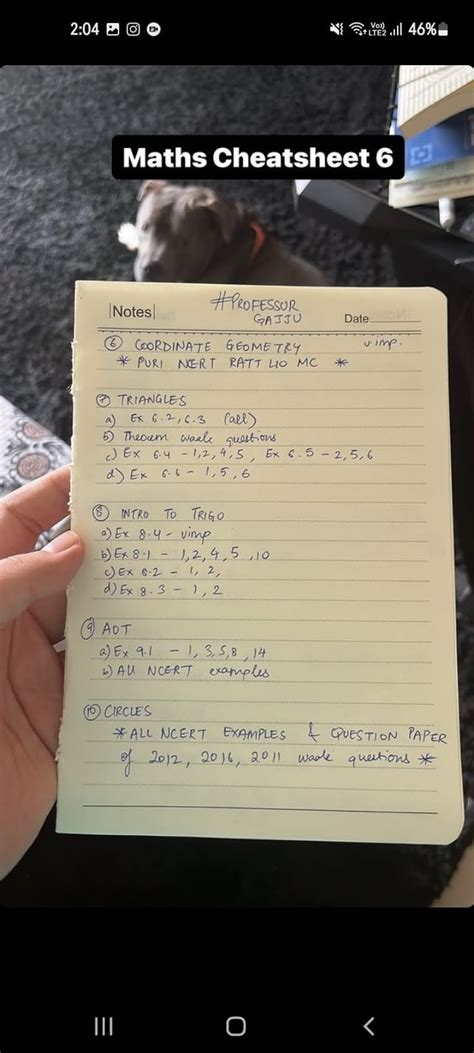 2:04
Vo)) LTE2 46%
Maths Cheatsheet 6
|Notes| #PROFESSUR
GAJJU Date
⑥ COORDINATE GEOMETRY v.imp.
* PURI NCERT RATT LIO MC *
⑦ TRIANGLES
a) Ex 6.2, 6.3 (all)
b) Theorem waale questions
c) Ex 6.4 - 1,2,4,5, Ex 6.5 - 2,5,6
d) Ex 6.6 - 1,5,6
⑧ INTRO TO TRIGO
a) Ex 8.4 - vimp
b) Ex 8.1 - 1,2,4,5,10
c) Ex 8.2 - 1, 2,
d) Ex 8.3 - 1, 2
⑨ AOT
a) Ex 9.1 - 1, 3,5,8, 14
b) All NCERT examples
⑩ CIRCLES
* ALL NCERT EXAMPLES & QUESTION PAPER
of 2012, 2016, 2011 waale questions *